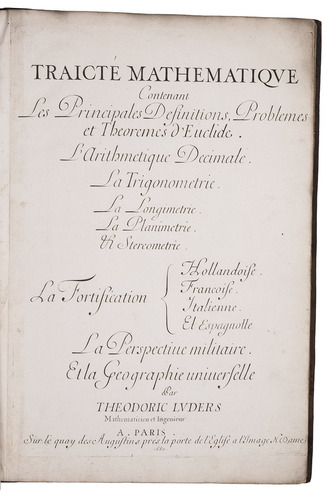 TRAICTÉ MATHEMATIQVE
Contenant
Les Principales Definitions, Problemes
et Theoremes d'Euclide.
L'Arithmetique Decimale.
La Trigonometrie.
La Longimetrie.
La Planimetrie.
Et Stereometrie.
La Fortification
Hollandoise.
Francoise.
Italienne.
Et Espagnolle
La Perspectiue militaire.
Et la Geographie uniuerselle
Par
THEODORIC LVDERS
Mathematicien et Ingenieur
A. PARIS
Sur le quay des Augustins, près la porte de l'Eglise a l'Image N. Dame